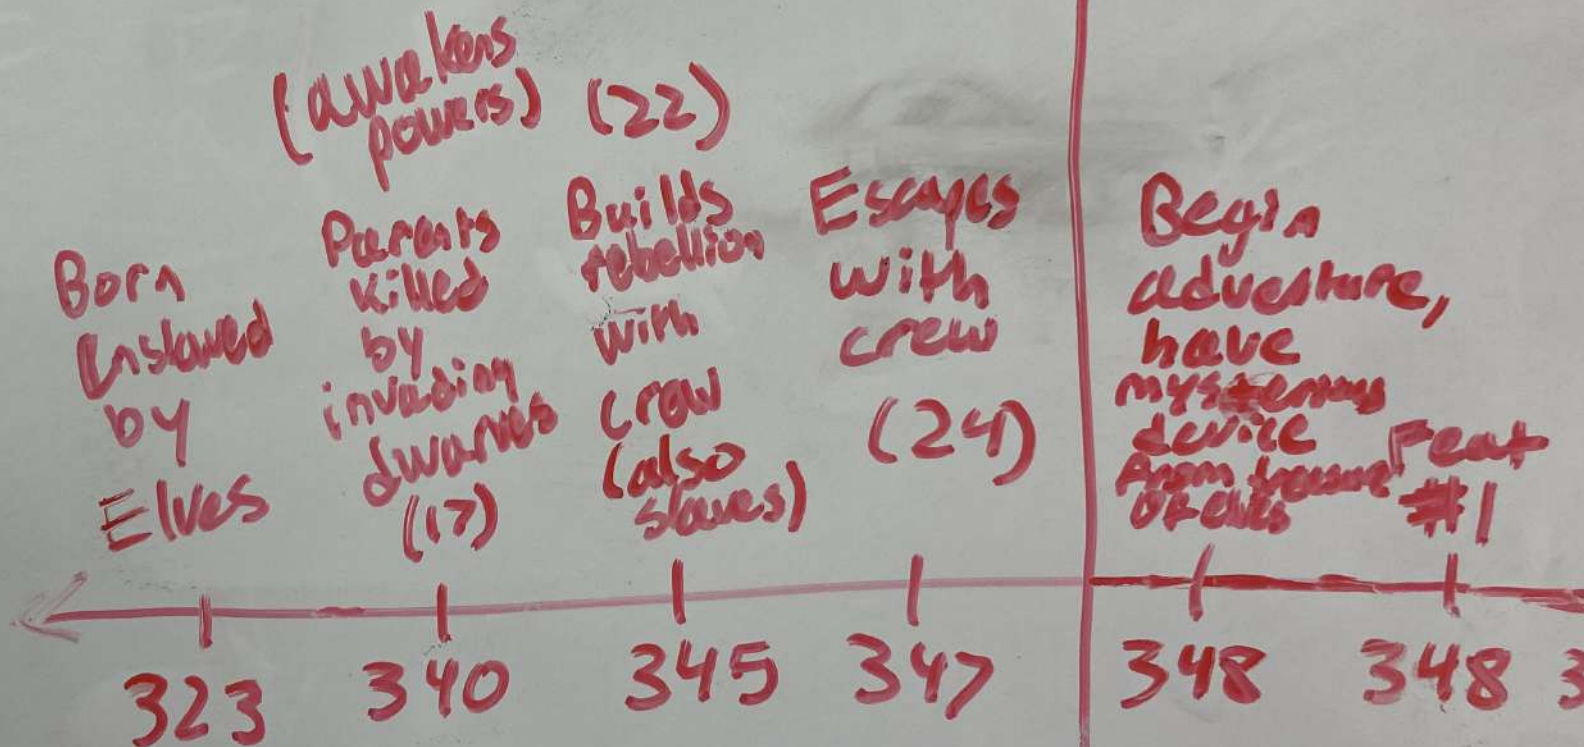 (awakens
powers)
(22)
Born
Enslaved
by
Elves
Parents
killed
by
invading
dwarves
(17)
Builds
rebellion
with
crew
(also
slaves)
Escapes
with
crew
(24)
Begin
adventure,
have
mysterious
device
from treasure
of elves
Feat
#1
323
340
345
347
348
348
3